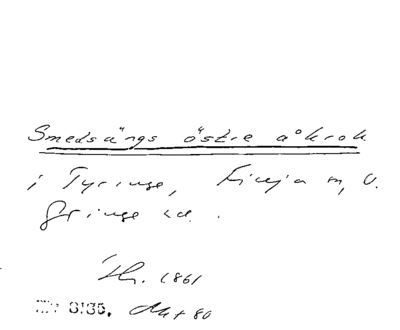 Smedsängs östre åkrok
i Tyringe, Finja m, V.
Göinge hd.
Hr. 1861
8135. Mt 80